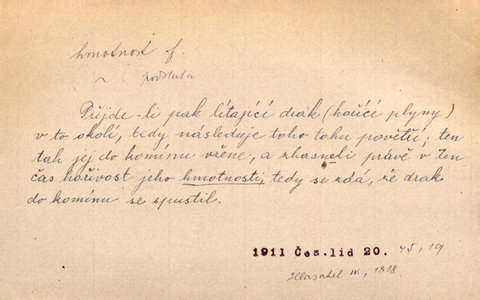 hmotnost f.
podstata
Přijde-li pak lítající drak (hořící plyny)
v to okolí, tedy následuje toho tahu povětří; ten
tah jej do komínu vžene, a zhasneli právě v ten
čas hořivost jeho hmotnosti, tedy se zdá, že drak
do komínu se spustil.
1911 Čes.lid 20. 45, 19
Hlasatel IV., 1818